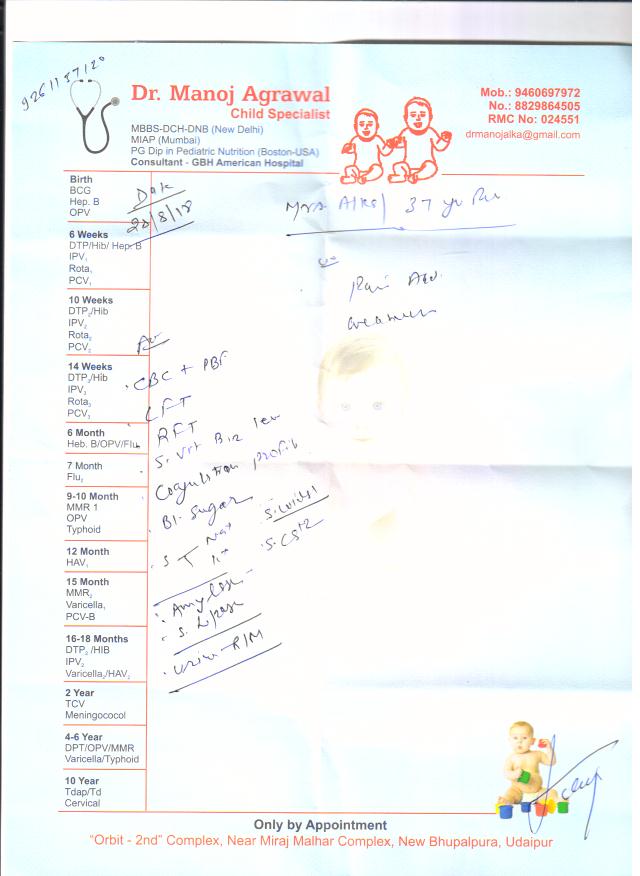 9261137120
Dr. Manoj Agrawal
Child Specialist
MBBS-DCH-DNB (New Delhi)
MIAP (Mumbai)
PG Dip in Pediatric Nutrition (Boston-USA)
Consultant - GBH American Hospital
Mob.: 9460697972
No.: 8829864505
RMC No: 024551
drmanojalka@gmail.com
Birth
BCG
Hep. B
OPV
6 Weeks
DTP/Hib/ Hep. B
IPV₁
Rota₁
PCV₁
10 Weeks
DTP₂/Hib
IPV₂
Rota₂
PCV₂
14 Weeks
DTP₃/Hib
IPV₃
Rota₃
PCV₃
6 Month
Heb. B/OPV/Flu₁
7 Month
Flu₂
9-10 Month
MMR 1
OPV
Typhoid
12 Month
HAV₁
15 Month
MMR₂
Varicella₁
PCV-B
16-18 Months
DTP₂ /HIB
IPV₂
Varicella₂/HAV₂
2 Year
TCV
Meningococol
4-6 Year
DPT/OPV/MMR
Varicella/Typhoid
10 Year
Tdap/Td
Cervical
Date
20/8/18
Mrs 37 yr
Pain Abd.
CBC + PBF
LFT
RFT
S. Vit B12
Coagulation profile
Bl. Sugar
S. Na+
K+
Amylase
S. Lipase
Urine R/M
Only by Appointment
"Orbit - 2nd" Complex, Near Miraj Malhar Complex, New Bhupalpura, Udaipur